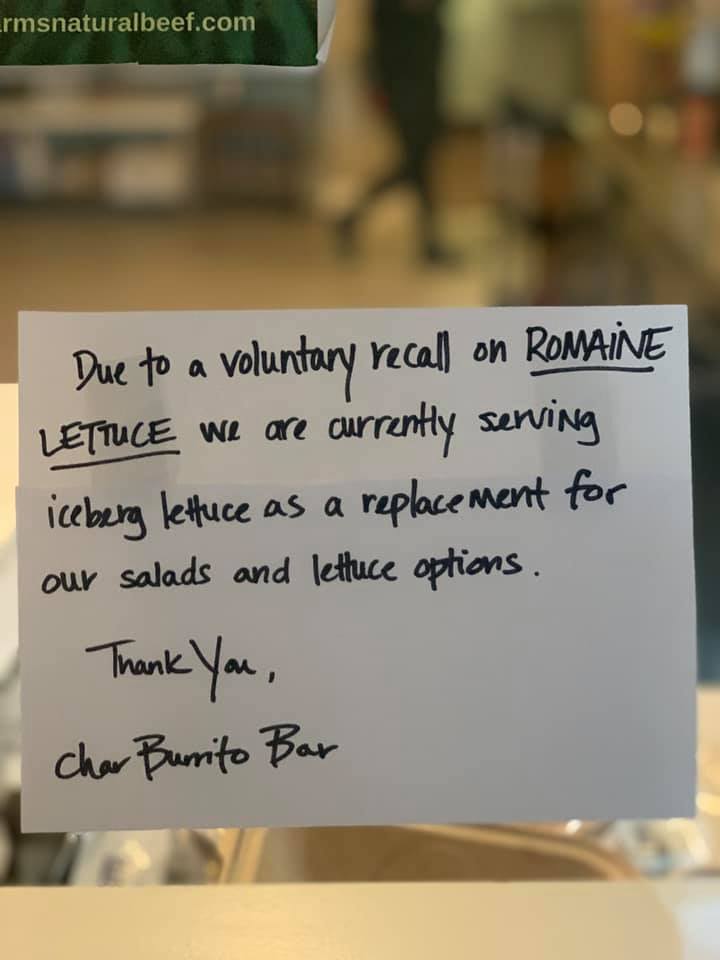 rmsnaturalbeef.com
Due to a voluntary recall on ROMAINE
LETTUCE we are currently serving
iceberg lettuce as a replacement for
our salads and lettuce options.
Thank You,
Char Burrito Bar